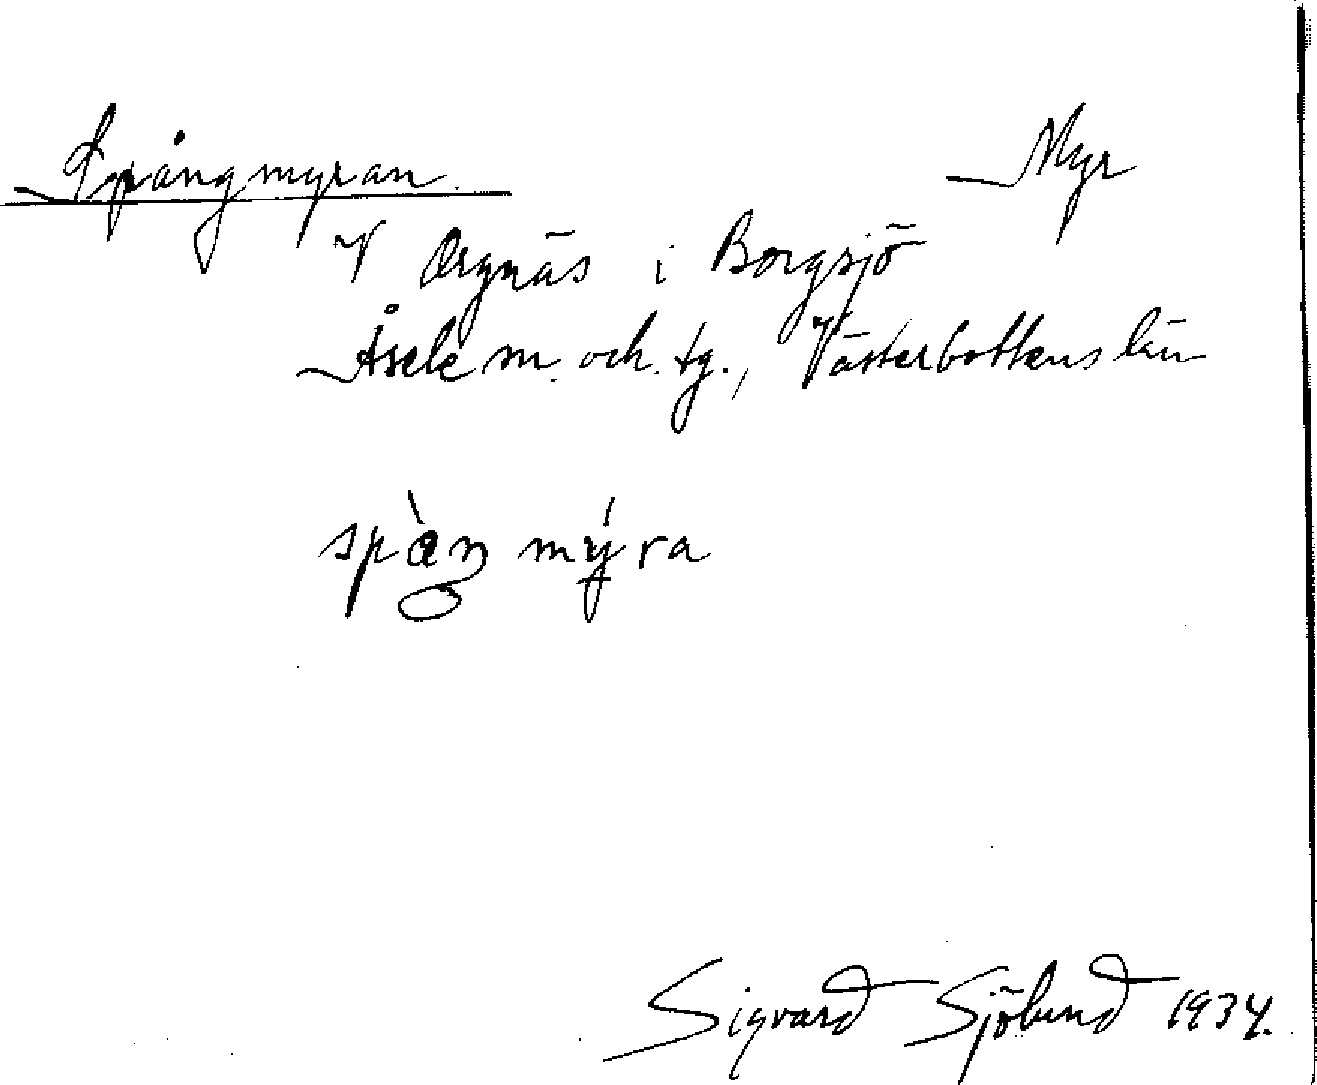 Spångmyran Myr
V Orgnäs i Borgsjö
Åsele sn. och tg., Västerbottens län
spàŋ mýra
Sigvard Sjölund 1934.